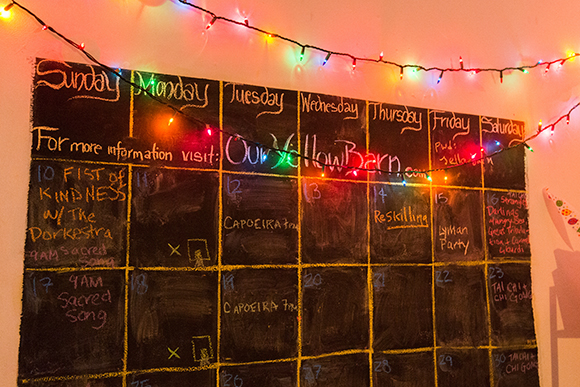 Sunday Monday Tuesday Wednesday Thursday Friday Saturday
For more information visit: OurYellowBarn.com
10 FIST OF
KINDNESS
W/ THE
Dorkestra
9AM sacred
song
12
CAPOEIRA 7pm
13
14
Reskilling
15
Lyman
Party
16
Darlings
17
9AM
Sacred
Song
18
19
CAPOEIRA 7pm
20
21
22
23
TAI CHI +
CHI GONG
25
26
28
29
30
TAI CHI +
CHI GONG